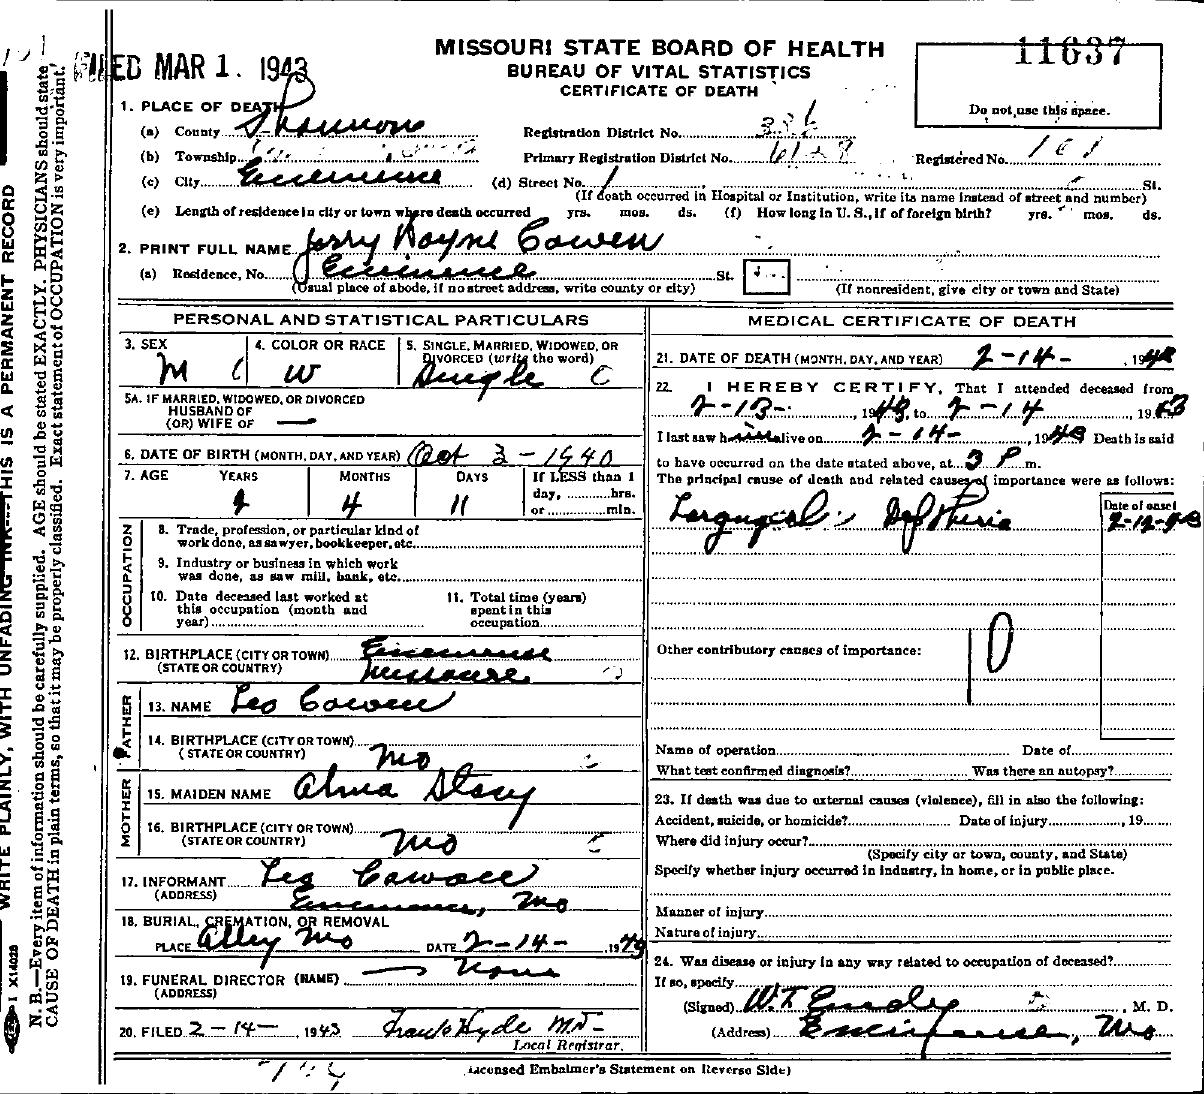 FILED MAR 1. 1943
MISSOURI STATE BOARD OF HEALTH
BUREAU OF VITAL STATISTICS
CERTIFICATE OF DEATH
11637
Do not use this space.
1. PLACE OF DEATH
(a) County Shannon
Registration District No. 336
(b) Township
Primary Registration District No. 6128
Registered No. 101
(c) City Eminence
(d) Street No. St.
(If death occurred in Hospital or Institution, write its name instead of street and number)
(e) Length of residence in city or town where death occurred yrs. mos. ds. (f) How long in U. S., if of foreign birth? yrs. mos. ds.
2. PRINT FULL NAME Jerry Wayne Cowen
(a) Residence, No. Eminence St.
(Usual place of abode, if no street address, write county or city)
(If nonresident, give city or town and State)
PERSONAL AND STATISTICAL PARTICULARS
3. SEX M
4. COLOR OR RACE W
5. SINGLE, MARRIED, WIDOWED, OR DIVORCED (write the word) Single
5A. IF MARRIED, WIDOWED, OR DIVORCED
HUSBAND OF
(OR) WIFE OF —
6. DATE OF BIRTH (MONTH, DAY, AND YEAR) Oct 3 - 1940
7. AGE YEARS MONTHS DAYS If LESS than 1
day, hrs.
or min.
2 4 11
OCCUPATION
8. Trade, profession, or particular kind of
work done, as sawyer, bookkeeper, etc.
9. Industry or business in which work
was done, as saw mill, bank, etc.
10. Date deceased last worked at
this occupation (month and
year)
11. Total time (years)
spent in this
occupation
12. BIRTHPLACE (CITY OR TOWN) Eminence
(STATE OR COUNTRY) Missouri
FATHER
13. NAME Leo Cowen
14. BIRTHPLACE (CITY OR TOWN)
(STATE OR COUNTRY) Mo
MOTHER
15. MAIDEN NAME Alma Stacy
16. BIRTHPLACE (CITY OR TOWN)
(STATE OR COUNTRY) Mo
17. INFORMANT Leo Cowen
(ADDRESS) Eminence, Mo
18. BURIAL, CREMATION, OR REMOVAL
PLACE Alley Mo DATE 2-14- 1943
19. FUNERAL DIRECTOR (NAME) — None
(ADDRESS)
20. FILED 2-14-, 1943 Frank Hyde M.D.
Local Registrar.
MEDICAL CERTIFICATE OF DEATH
21. DATE OF DEATH (MONTH, DAY, AND YEAR) 2-14- 1943
22. I HEREBY CERTIFY, That I attended deceased from
2-13-, 1943, to 2-14, 1943
I last saw him alive on 2-14-, 1943 Death is said
to have occurred on the date stated above, at 3 P m.
The principal cause of death and related causes of importance were as follows:
Date of onset
Laryngeal Diptheria 2-12-43
Other contributory causes of importance:
10
Name of operation Date of
What test confirmed diagnosis? Was there an autopsy?
23. If death was due to external causes (violence), fill in also the following:
Accident, suicide, or homicide? Date of injury, 19
Where did injury occur?
(Specify city or town, county, and State)
Specify whether injury occurred in industry, in home, or in public place.
Manner of injury
Nature of injury
24. Was disease or injury in any way related to occupation of deceased?
If so, specify
(Signed) W.T. Eudy, M. D.
(Address) Eminence, Mo
Licensed Embalmer's Statement on Reverse Side)
WRITE PLAINLY, WITH UNFADING INK—THIS IS A PERMANENT RECORD
N. B.—Every item of information should be carefully supplied. AGE should be stated EXACTLY. PHYSICIANS should state
CAUSE OF DEATH in plain terms, so that it may be properly classified. Exact statement of OCCUPATION is very important.
I X14028